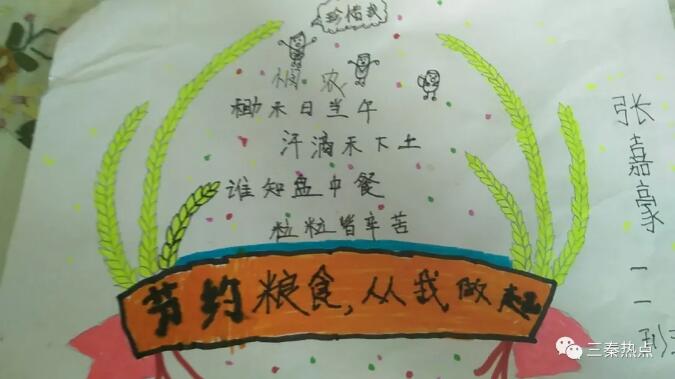 珍惜我
悯农
锄禾日当午
汗滴禾下土
谁知盘中餐
粒粒皆辛苦
节约粮食,从我做起
张嘉豪 一一班
三秦热点